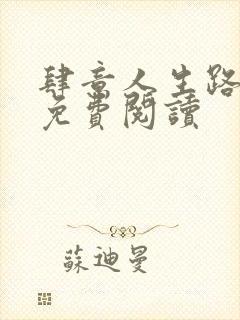 肆意人生路
免費閱讀
蘇迪曼